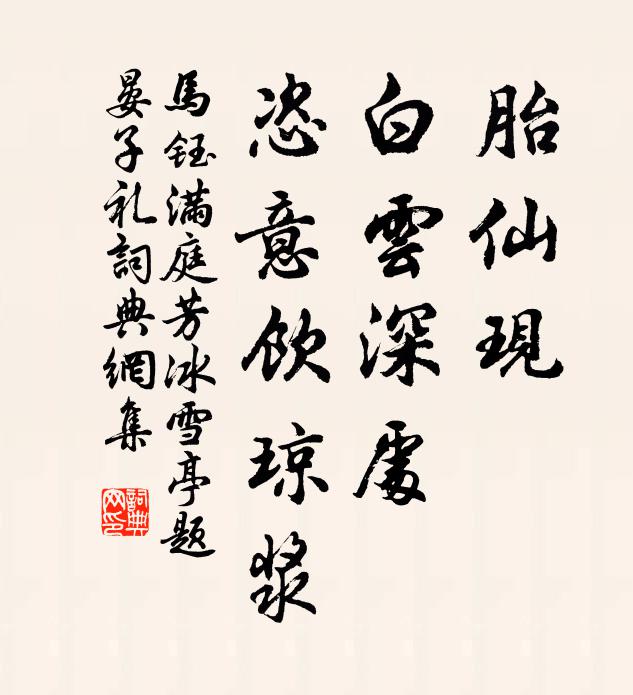 胎仙現
白雲深處
恣意飲琼漿
馬鈺滿庭芳冰雪亭题
晏子礼詞典網集
詞典网印